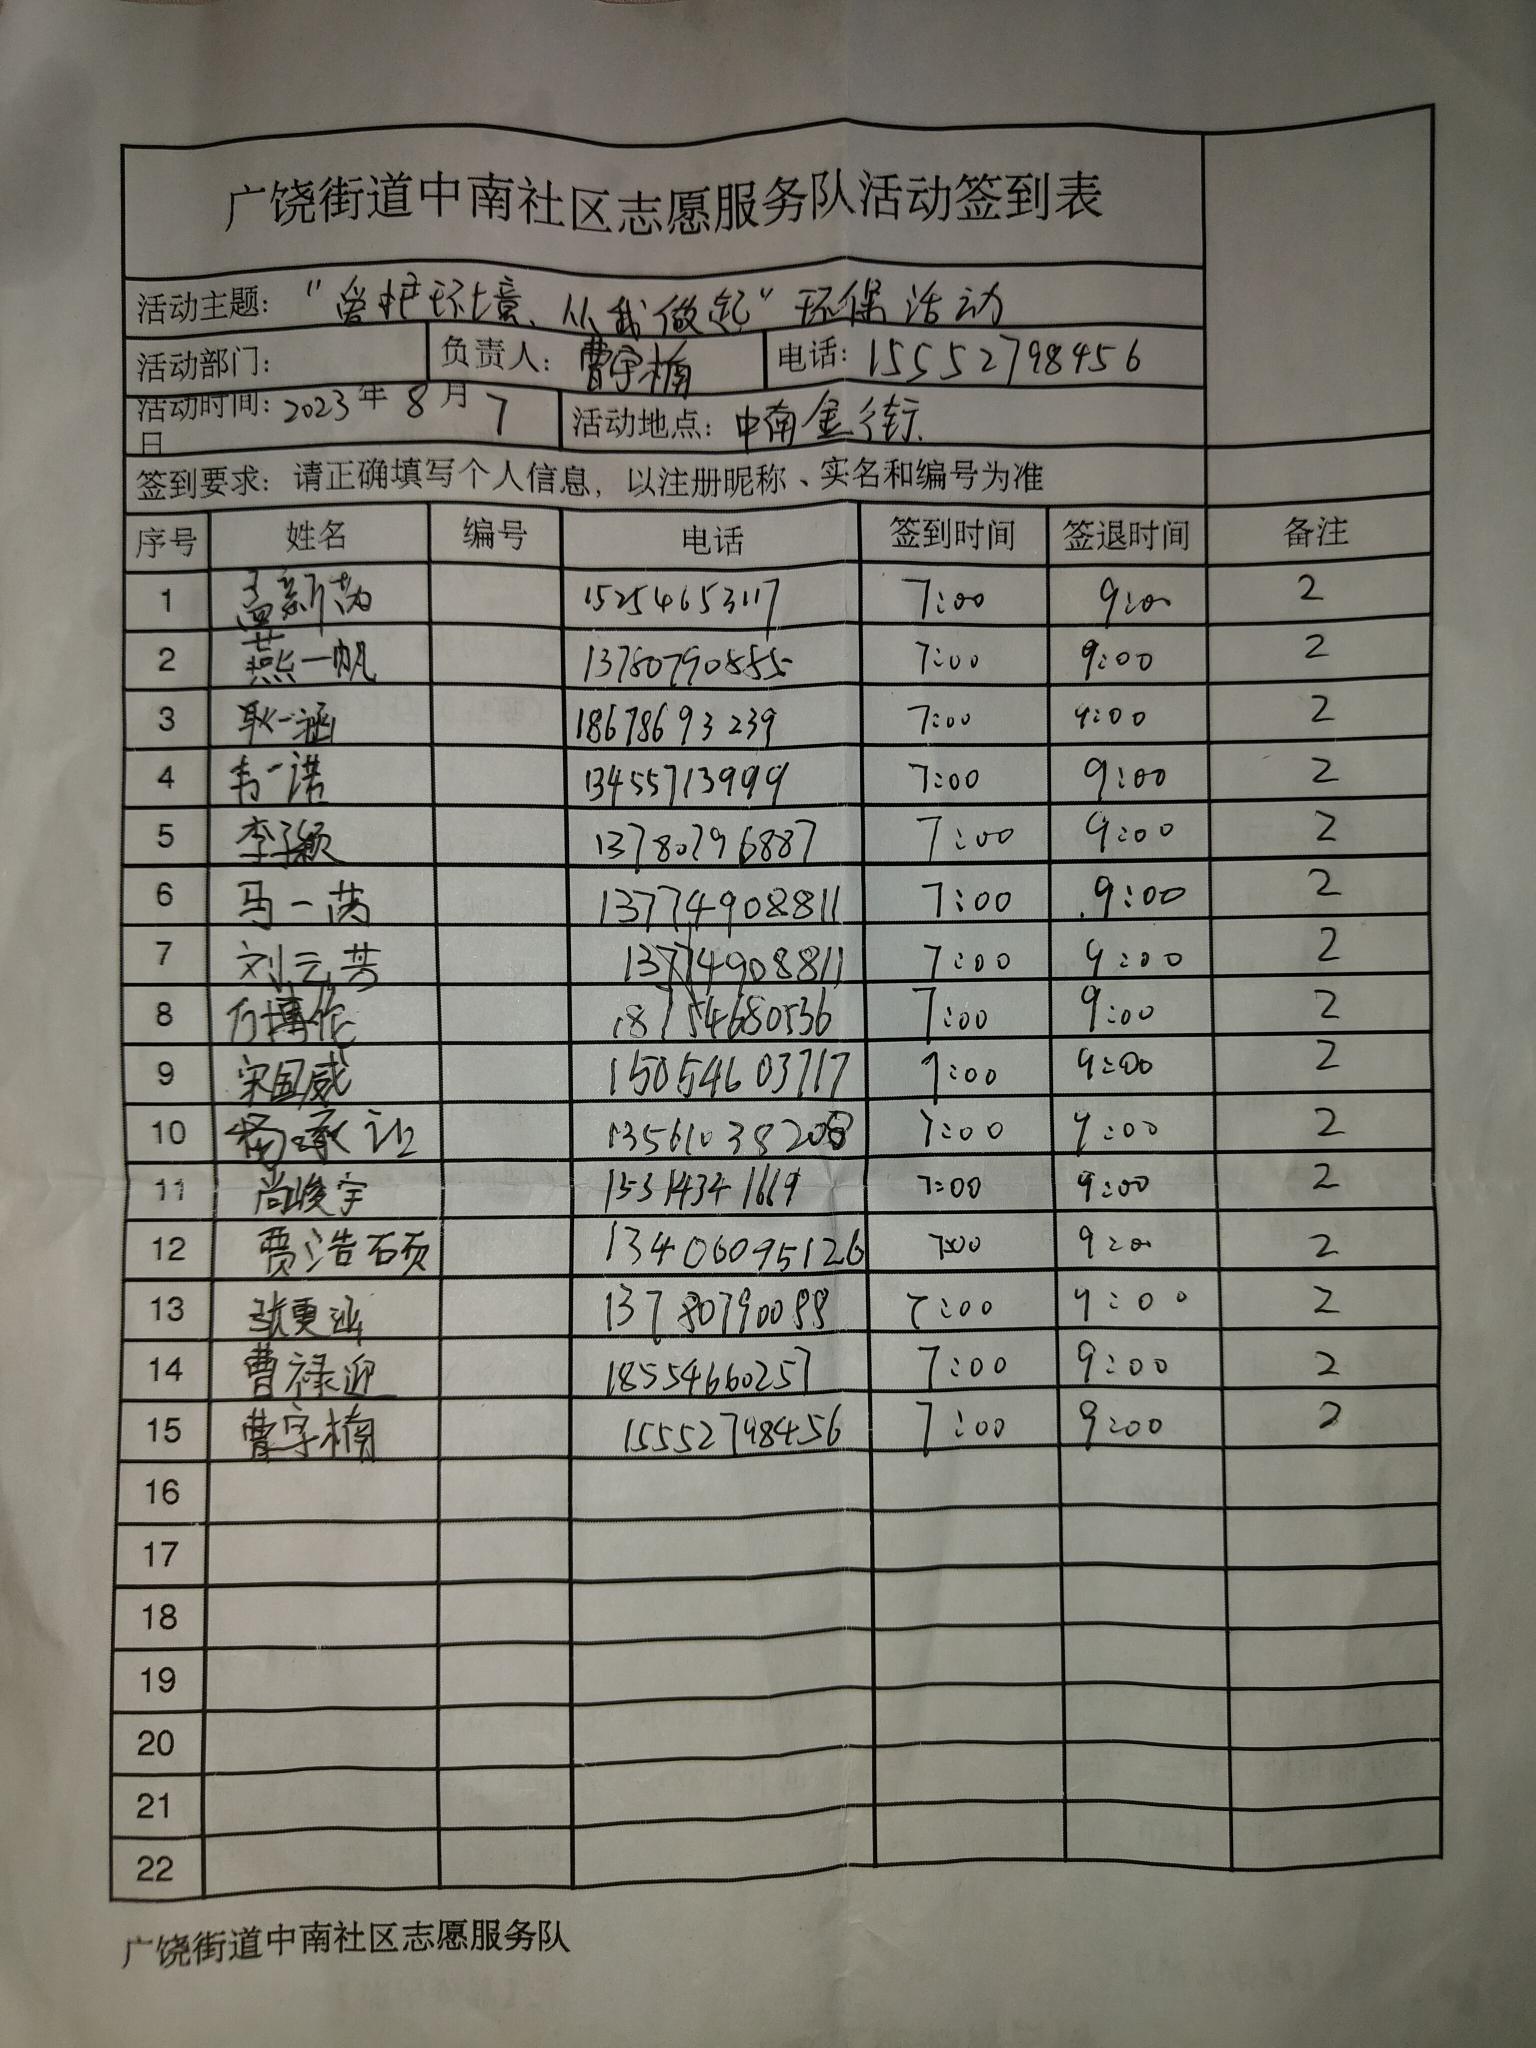 广饶街道中南社区志愿服务队活动签到表
活动主题：“爱护环境、从我做起”环保活动
活动部门： 负责人：曹宇楠 电话：15552798456
活动时间：2023年8月7日 活动地点：中南金街
签到要求：请正确填写个人信息，以注册昵称、实名和编号为准
序号 姓名 编号 电话 签到时间 签退时间 备注
1 孟新芮 15254653117 7:00 9:00 2
2 燕一帆 13780790555 7:00 9:00 2
3 耿一涵 18678693239 7:00 9:00 2
4 韦一诺 13455713999 7:00 9:00 2
5 李子颖 13780796887 7:00 9:00 2
6 马一芮 13774908811 7:00 9:00 2
7 刘云芸 13774908811 7:00 9:00 2
8 18754680536 7:00 9:00 2
9 宋国威 15054603717 7:00 9:00 2
10 杨承让 7:00 9:00 2
11 尚峻宇 15314341619 7:00 9:00 2
12 贾浩硕 13406095126 7:00 9:00 2
13 张更涵 13780790088 7:00 9:00 2
14 曹禄迎 18554660257 7:00 9:00 2
15 曹宇楠 15552798456 7:00 9:00 2
16
17
18
19
20
21
22
广饶街道中南社区志愿服务队